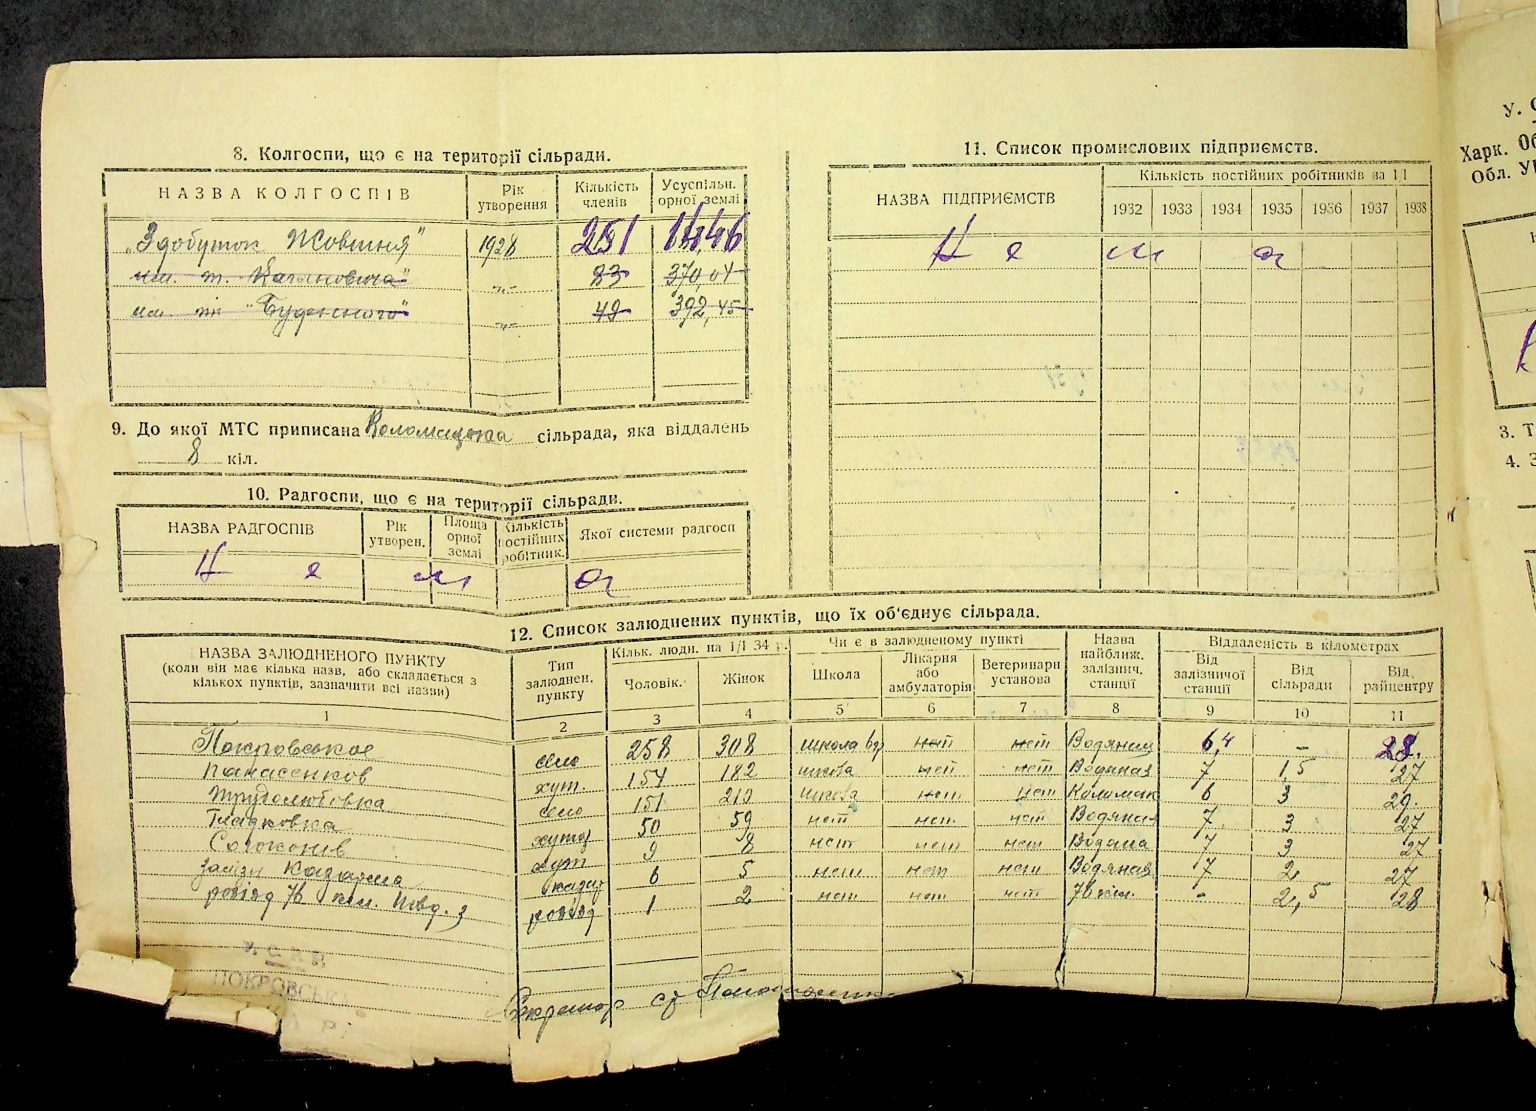 8. Колгоспи, що є на території сільради.
НАЗВА КОЛГОСПІВ
Рік утворення
Кількість членів
Усуспільн. орної землі
„Здобуток Жовтня" 1928 251
им. т. Кагановича" -„- 83 370,04
им тт "Буденного" -„- 49 392,45
9. До якої МТС приписана Коломацька сільрада, яка віддалень
8 кіл.
10. Радгоспи, що є на території сільради.
НАЗВА РАДГОСПІВ
Рік утворен.
Площа орної землі
Кількість постійних робітник.
Якої системи радгосп
Н е м а
11. Список промислових підприємств.
НАЗВА ПІДПРИЄМСТВ
Кількість постійних робітників на 1 І
1932 1933 1934 1935 1936 1937 1938
Н е м а
12. Список залюднених пунктів, що їх об'єднує сільрада.
НАЗВА ЗАЛЮДНЕНОГО ПУНКТУ
(коли він має кілька назв, або складається з
кількох пунктів, зазначити всі назви)
Тип залюднен. пункту
Кільк. людн. на 1/І 34 г.
Чоловік.
Жінок
Чи є в залюдненому пункті
Школа
Лікарня або амбулаторія
Ветеринарн установа
Назва найближ. залізнич. станції
Віддаленість в кілометрах
Від залізничої станції
Від сільради
Від райцентру
1 2 3 4 5 6 7 8 9 10 11
Покровськое село 258 308 школа нет нет 6,4 - 28.
Панасенков хут 154 182 школа нет нет Водяная 7 1,5 27
Трудолюбовка село 151 210 школа нет нет Коломак 6 3 29.
Гладковка хутор 50 59 нет нет нет Водяная 7 3 27
хут 9 8 нет нет нет Водяна 7 3 27
залізн казарма казар 6 5 нет нет нет Водяная 7 2 27
розізд 76 км. Півд. з розізд 1 2 нет нет нет 76 км. - 2,5 28
У.С.Р.Р.
ПОКРОВСЬК
Секретар с/
У. С
Харк. Об
Обл. У
3. Т
4. З